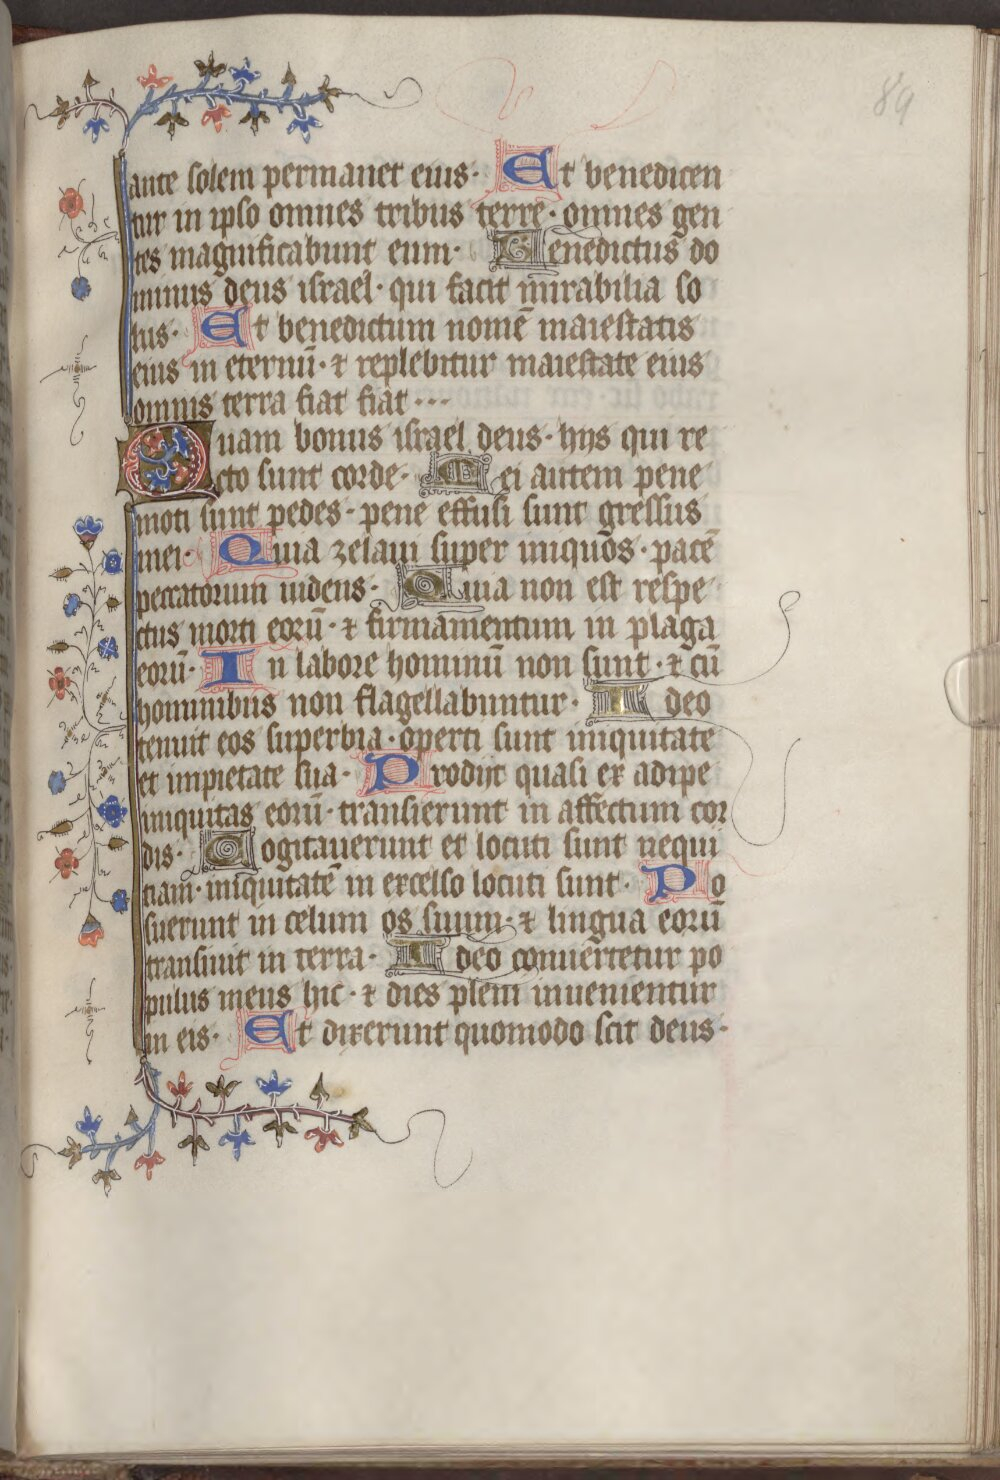 89
ante solem permanet eius· Et benedicen
tur in ipso omnes tribus terre· omnes gen
tes magnificabunt eum· Benedictus do
minus deus israel· qui facit mirabilia so
lus· Et benedictum nomē maiestatis
eius in eternū· ⁊ replebitur maiestate eius
omnis terra fiat fiat···
Quam bonus israel deus· hijs qui re
cto sunt corde· Mei autem pene
moti sunt pedes· pene effusi sunt gressus
mei· Quia zelaui super iniquos· pacē
peccatorum uidens· Quia non est respe
ctus morti eorū· ⁊ firmamentum in plaga
eorū· In labore hominū non sunt· ⁊ cū
hominibus non flagellabuntur· Ideo
tenuit eos superbia· operti sunt iniquitate
et impietate sua· Prodijt quasi ex adipe
iniquitas eorū· transierunt in affectum cor
dis· Cogitauerunt et locuti sunt nequi
tiam· iniquitatē in excelso locuti sunt· Po
suerunt in celum os suum· ⁊ lingua eorū
transiuit in terra· Ideo conuertetur po
pulus meus hic· ⁊ dies pleni inuenientur
in eis· Et dixerunt quomodo scit deus·